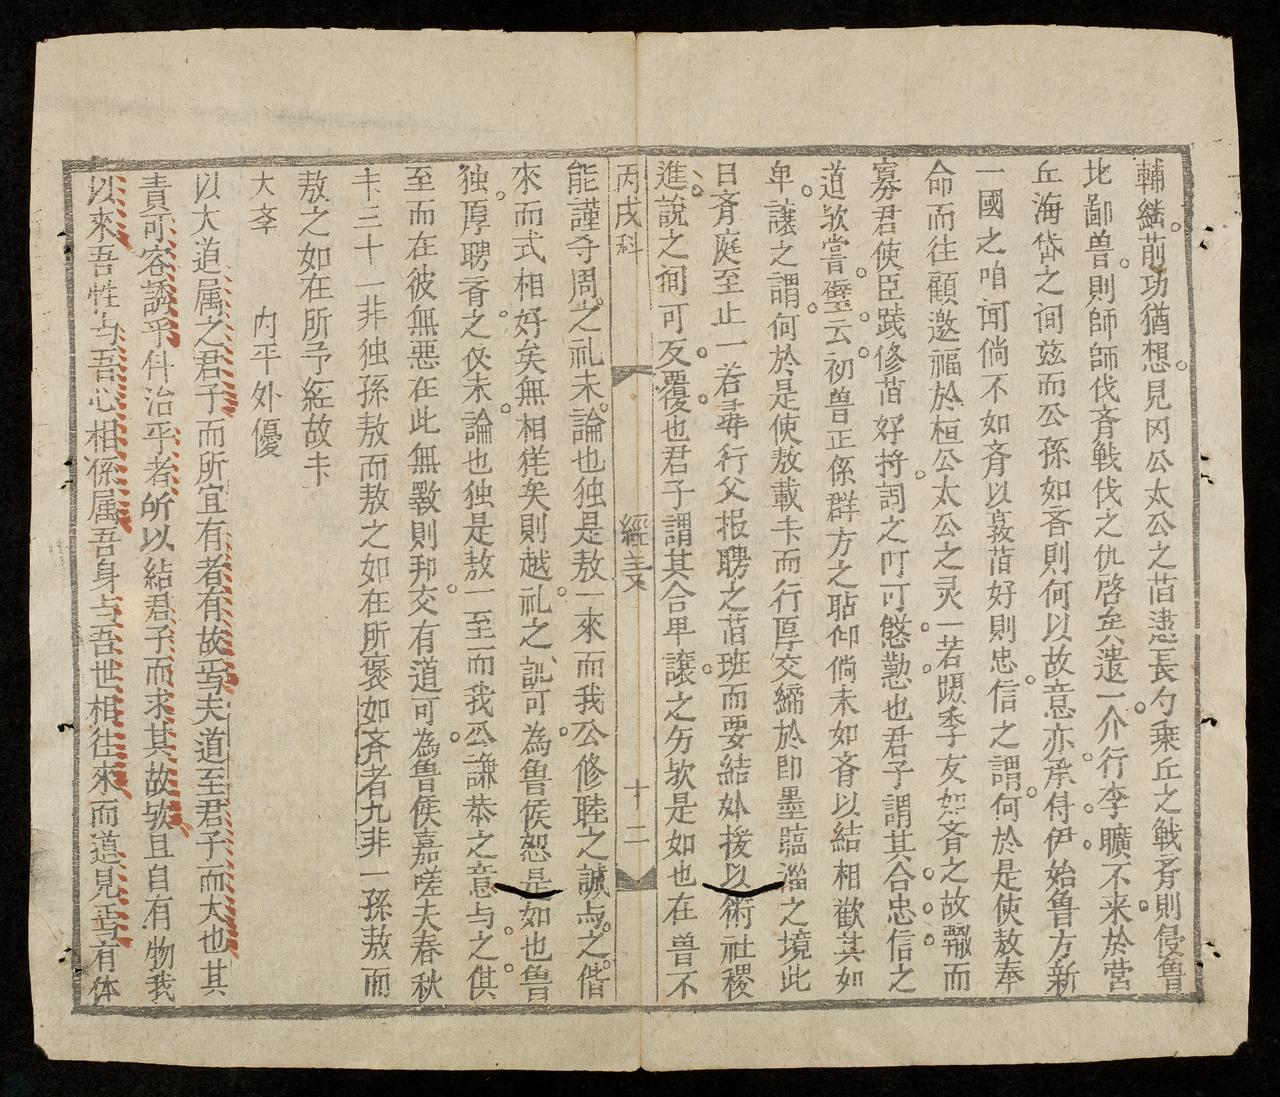 輔繇前功猶想見冈公太公之旹遗長勺乗丘之戰斉則侵魯
北鄙兽則師師伐斉戰伐之仇啓矣遣一介行李曠不来於营
丘海岱之间玆而公孫如吝則何以故意亦承侍伊始鲁方新
一國之咱闻倘不如斉以敦旹好則忠信之謂何於是使敖奉
命而往顧邀福於桓公太公之灵一若䫏季友如斉之故轍而
寡君使臣践修旹好将詞之叮可慇懃也君子謂其合忠信之
道欤嘗壁云初兽正係群方之聒仰倘未如斉以結相歡其如
卑譲之謂何於是使敖載卡而行厚交締於即墨臨淄之境此
日斉庭至止一若尋行父报聘之旹班而要結外援以衛社稷
進說之间可反覆也君子謂其合卑譲之方欤是如也在兽不
丙戌科 經义 十二
能謹守周之礼未論也独是敖一來而我公修睦之誠与之偕
來而式相好矣無相犹矣則越礼之訛可為鲁侯恕是如也魯
独厚聘斉之使未論也独是敖一至而我公謙恭之意与之俱
至而在彼無悪在此無斁則邦交有道可為鲁侯嘉嗟夫春秋
卡三十一非独孫敖而敖之如在所褒如斉者九非一孫敖而
敖之如在所予経故卡
大孝 内平外優
以大道属之君子而所宜有者有故焉夫道至君子而大也其
責可容諉乎料治平者所以結君子而求其故欤且自有物我
以來吾性与吾心相係属吾身与吾世相往來而道見焉有体